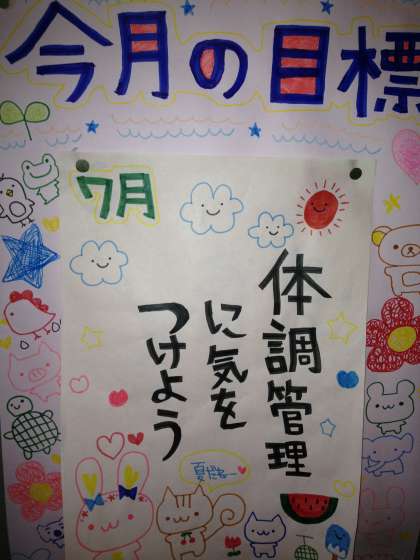 今月の目標
7月
体調管理
に気を
つけよう
夏だねー